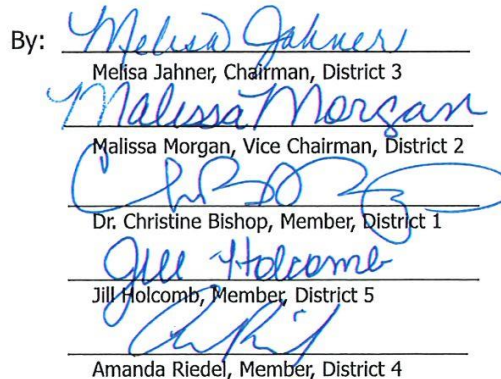 By: Melisa Jahner
Melisa Jahner, Chairman, District 3
Malissa Morgan
Malissa Morgan, Vice Chairman, District 2
Dr. Christine Bishop, Member, District 1
Jill Holcomb
Jill Holcomb, Member, District 5
Amanda Riedel, Member, District 4